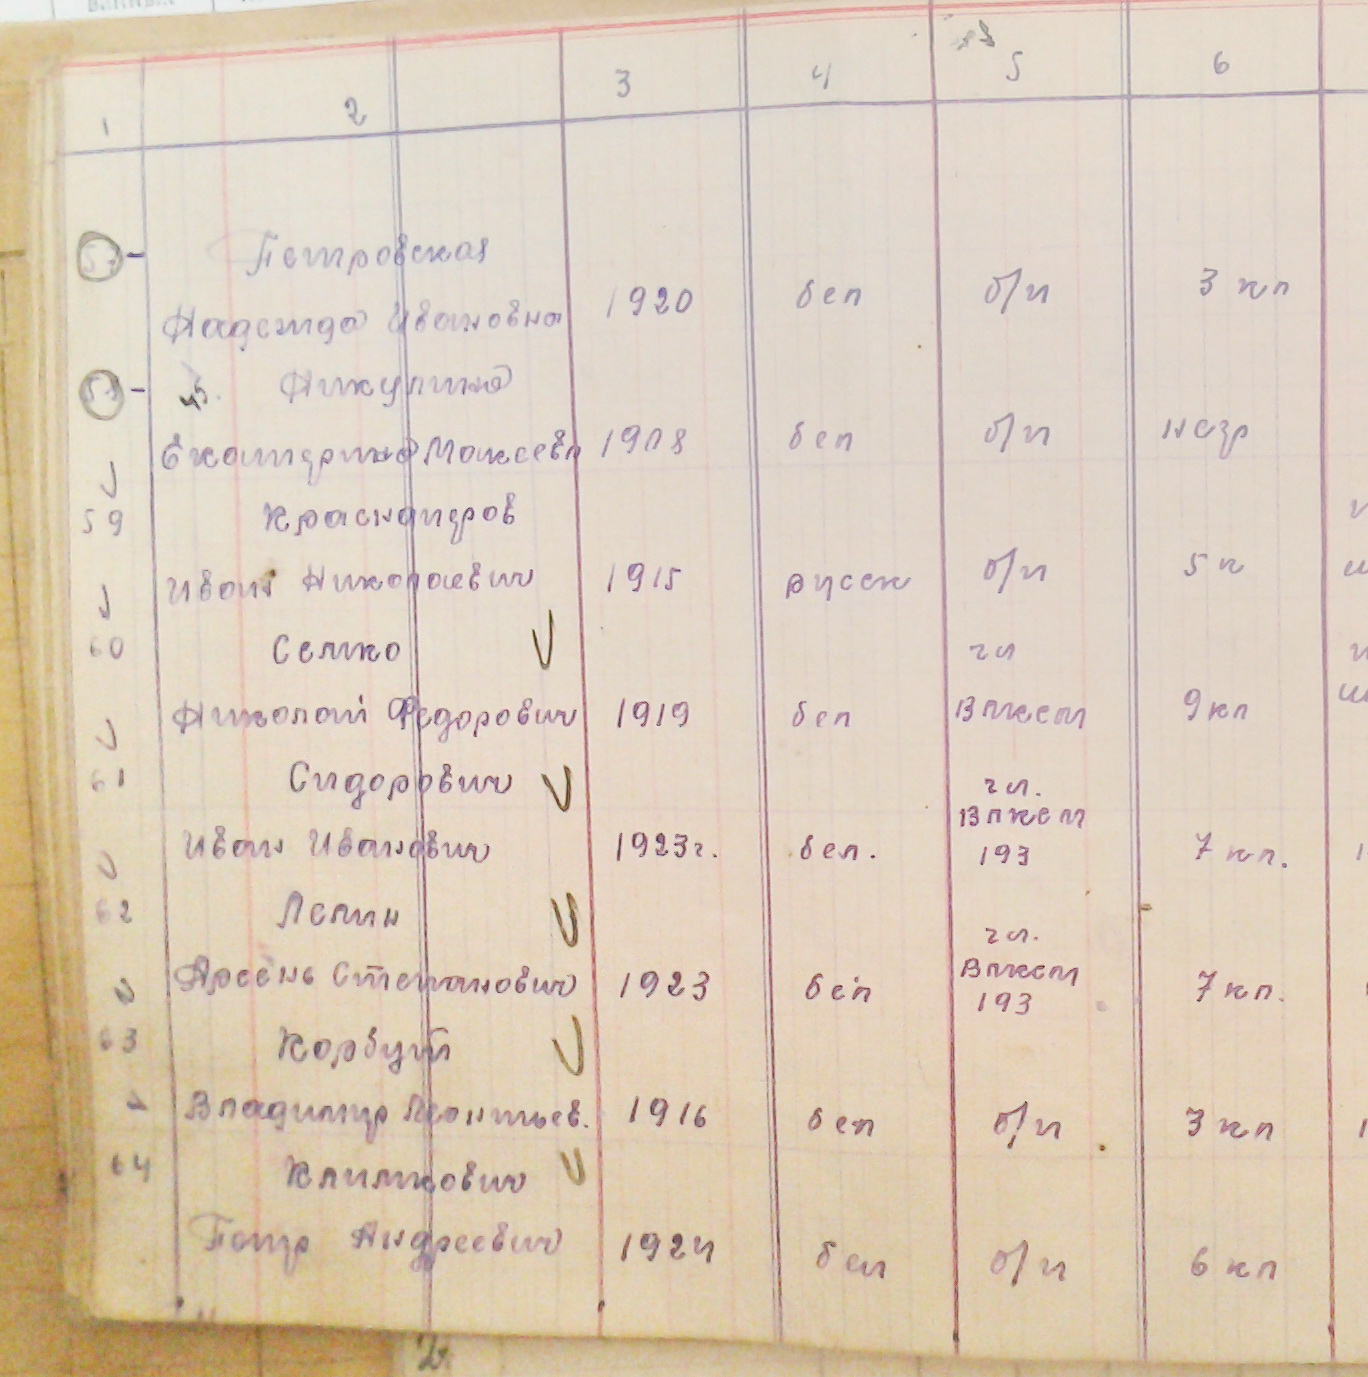 1 2 3 4 5 6
57 - Петровская
Надежда Ивановна 1920 бел б/п 3 кл
58 - Никулина
Екатерина Моисеевн 1908 бел б/п негр
59 Красноперов
Иван Николаевич 1915 русск б/п 5 к
60 Семко чл
Николай Федорович 1919 бел ВЛКСМ 9 кл
61 Сидорович чл.
ВЛКСМ
Иван Иванович 1923г. бел. 193 7 кл.
62 Лепин чл.
Арсень Степанович 1923 бел ВЛКСМ 7 кл.
193
63 Корбут
Владимир Леонтьев. 1916 бел б/п 3 кл
64 Климкович
Петр Андреевич 1924 бел б/п 6 кл